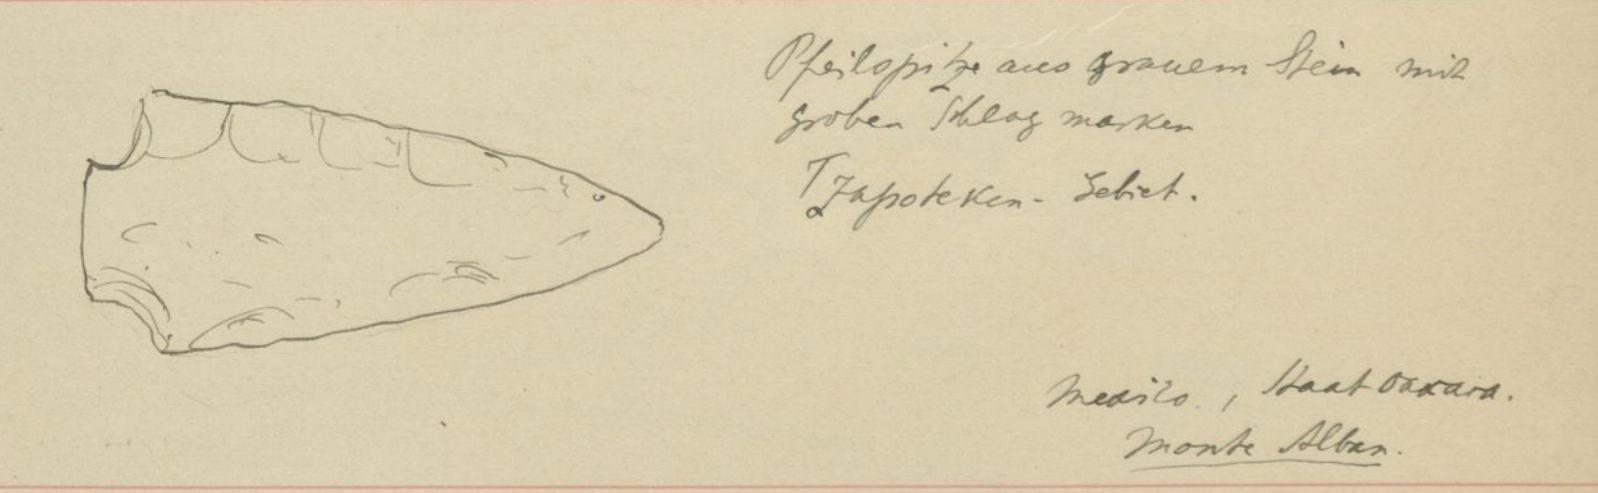 Pfeilspitze aus grauem Stein mit
groben Schlagmarken
Tzapoteken-Gebiet.
Mexiko, Staat Oaxaca.
Monte Alban.